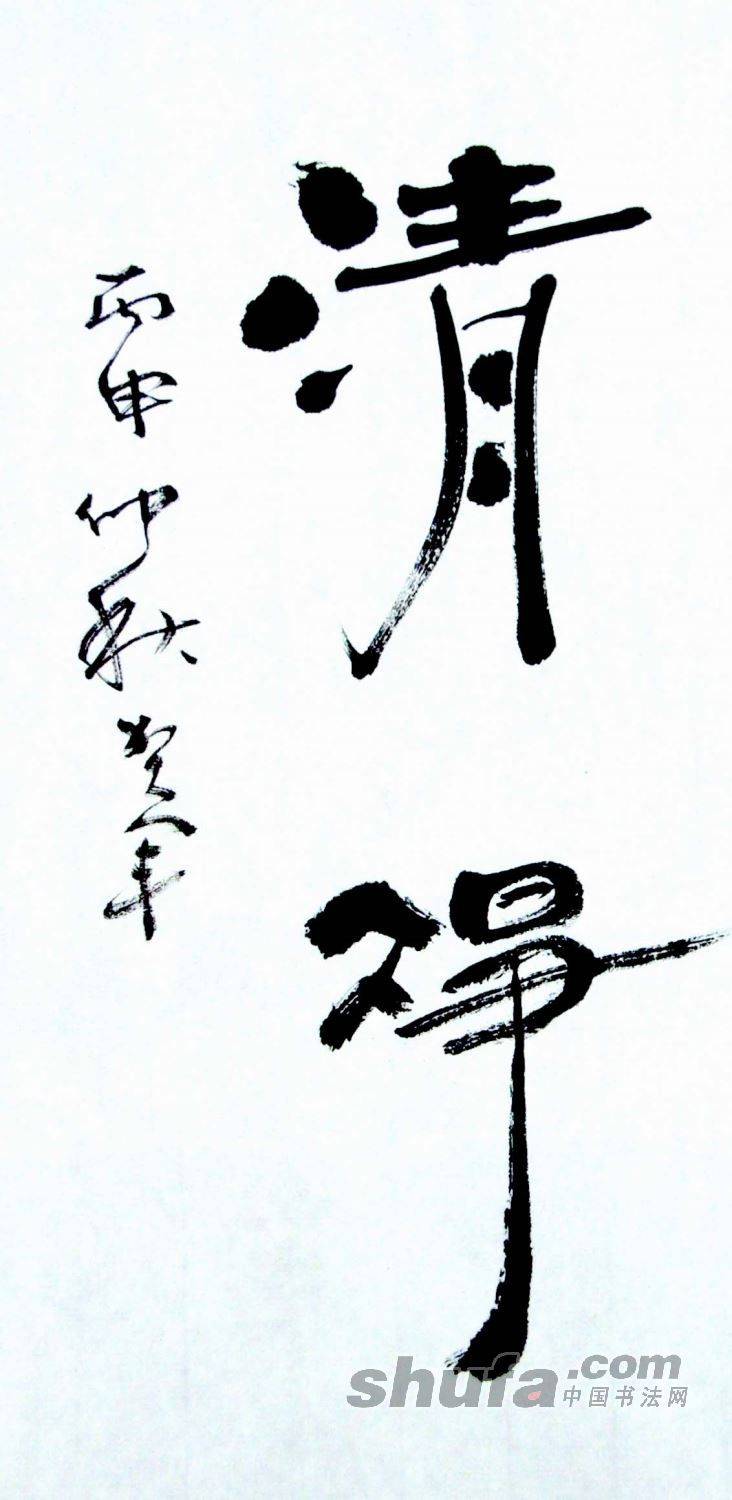 清禅
丙申仲秋贺军
shufa.com
中国书法网